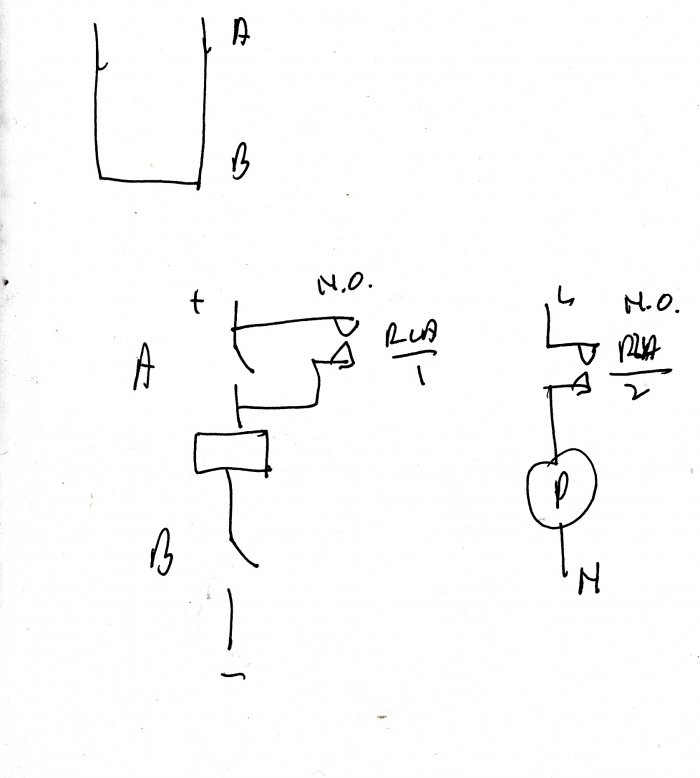 A
B
+
N.O.
A
RLA
1
B
-
L
N.O.
RLA
2
P
N